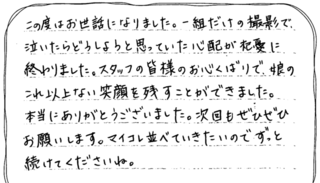 この度はお世話になりました。一組だけの撮影で、
泣いたらどうしようと思っていた心配が杞憂に
終わりました。スタッフの皆様のお心くばりで、娘の
これ以上ない笑顔を残すことができました。
本当にありがとうございました。次回もぜひぜひ
お願いします。マイコレ並べていきたいのでずっと
続けてくださいね。